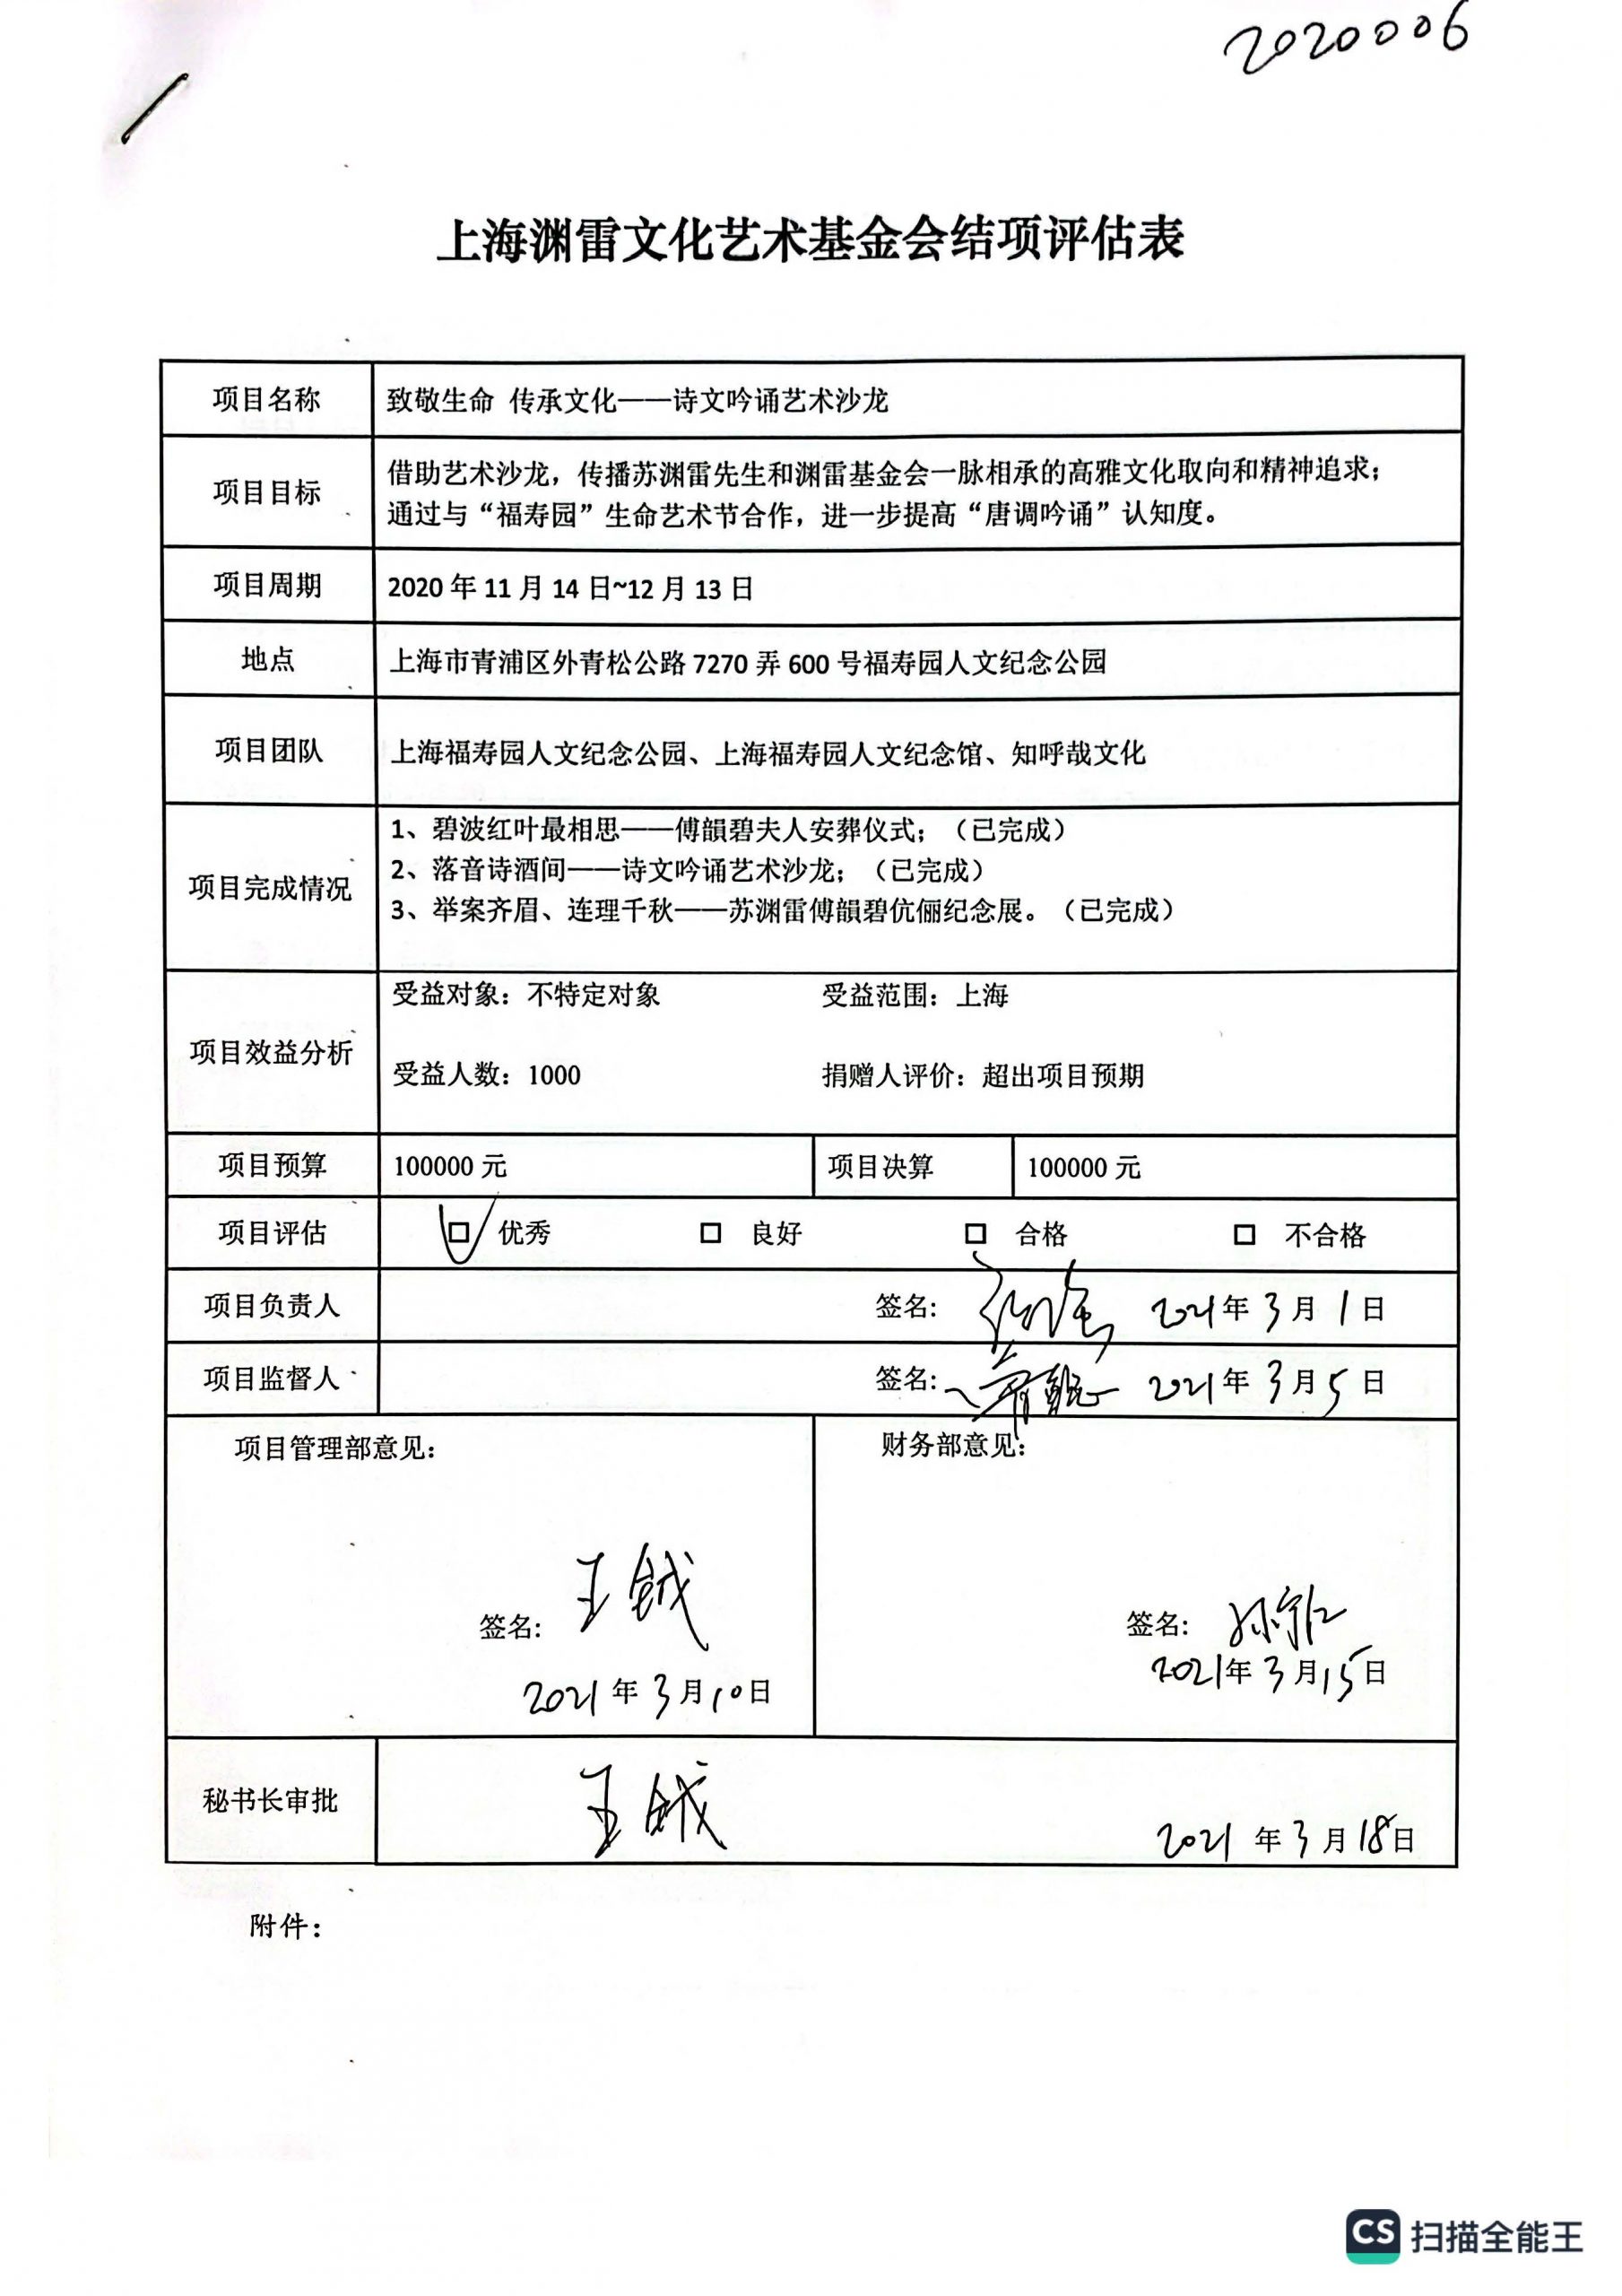 2020006
上海渊雷文化艺术基金会结项评估表
项目名称 致敬生命 传承文化——诗文吟诵艺术沙龙
项目目标 借助艺术沙龙，传播苏渊雷先生和渊雷基金会一脉相承的高雅文化取向和精神追求；
通过与“福寿园”生命艺术节合作，进一步提高“唐调吟诵”认知度。
项目周期 2020 年 11 月 14 日~12 月 13 日
地点 上海市青浦区外青松公路 7270 弄 600 号福寿园人文纪念公园
项目团队 上海福寿园人文纪念公园、上海福寿园人文纪念馆、知呼哉文化
项目完成情况
1、碧波红叶最相思——傅韻碧夫人安葬仪式；（已完成）
2、落音诗酒间——诗文吟诵艺术沙龙；（已完成）
3、举案齐眉、连理千秋——苏渊雷傅韻碧伉俪纪念展。（已完成）
项目效益分析
受益对象：不特定对象 受益范围：上海
受益人数：1000 捐赠人评价：超出项目预期
项目预算 100000 元 项目决算 100000 元
项目评估 优秀 良好 合格 不合格
项目负责人 签名: 2021年 3 月 1 日
项目监督人 签名: 2021年 3 月 5 日
项目管理部意见： 财务部意见：
签名: 王钺
2021 年 3 月 10 日
签名:
2021年 3 月 15 日
秘书长审批 王钺 2021 年 3 月 18 日
附件：
CS 扫描全能王